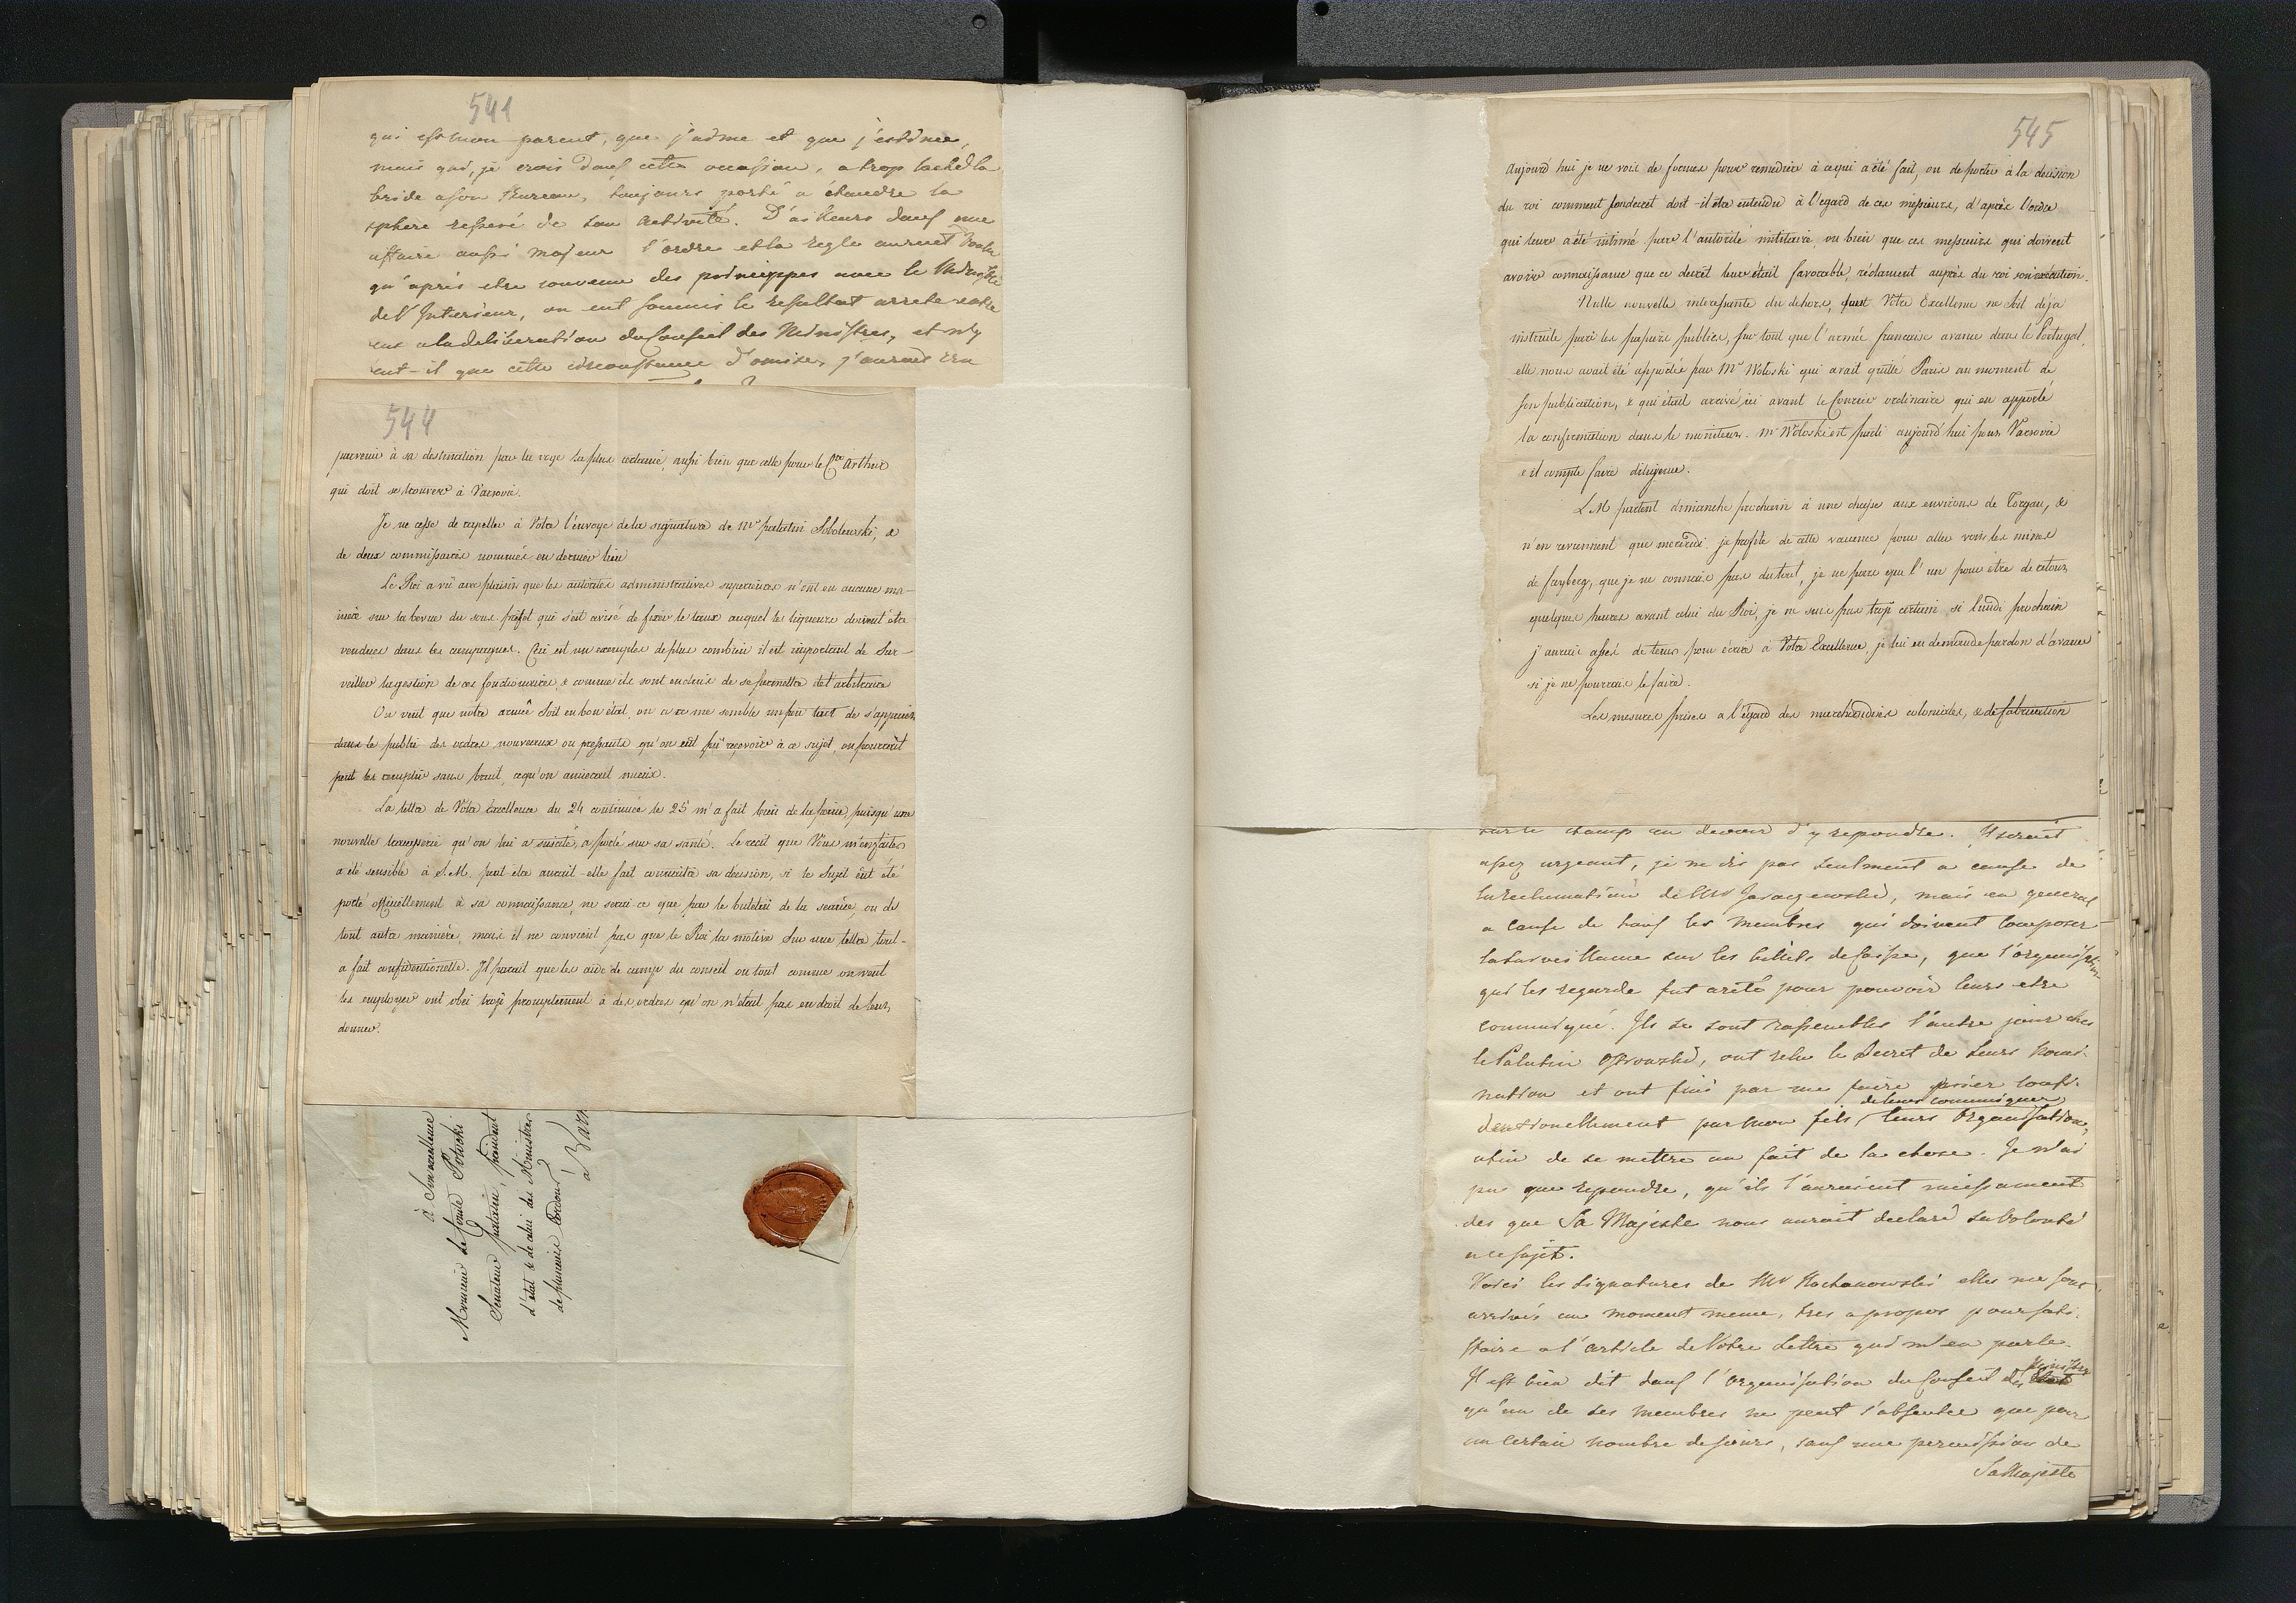 541
qui est mon parent, que j'aime et que j'estime,
mais qui, je crois dans cette occasion, a trop laché la
bride a son Bureau, toujours porté a étendre la
sphere resserré de son activité. D'ailleurs dans une
affaire aussi majeur l'ordre et la regle auroient voulu
qu'après etre convenu des principes avec le Ministre
de l'Interieur, on eut soumis le resultat arreté entre
eux a la deliberation du Conseil des Ministres, et n'y
eut-il que cette circonstance d'omise, j'aurois cru
544
parvenir à sa destination par la voye la plus certaine, aussi bien que celle pour le Cte Arthur
qui doit se trouver à Varsovie.
Je ne cesse de rapeller à Votre l'envoye de la signature de Mr palatin Sobolewski, &
de deux commissaires nommés en dernier lieu
Le Roi a vû avec plaisir que les autorités administratives superieures n'ont eu aucune ma-
nière sur la bevue du sous-prefet qui s'est avisé de fixer le taux auquel les liqueurs doivent être
vendues dans les campagnes. Ceci est un exemple de plus combien il est important de sur-
veiller la gestion de ces fonctionnaires, & comme ils sont enclins de se permettre de l'arbitraire
On veut que notre armée soit en bon état, on a ce me semble un peu tort de s'appuier
dans le public des ordres nouveaux ou pressants qu'on eut pû reçevoir à ce sujet, on pourrait
peut les remplir sans bruit, ce qu'on aimerait mieux.
La lettre de Votre Excellence du 24 continuée le 25 m'a fait bien de la peine, puisqu'une
nouvelle tracasserie qu'on lui a suscité, a porté sur sa santé. Le recit que Vous m'en faites
a été sensible à S.M. peut-être aurait-elle fait connaitre sa décision, si le sujet eût été
porté officiellement à sa connaissance, ne serai-ce que par le bulletin de la séance, ou de
tout autre manière, mais il ne convient pas que le Roi la motive sur une lettre tout-
a fait confidentionelle. Il parait que les aide de camps du conseil ou tout comme on veut
les employer ont obei trop promptement à des ordres qu'on n'était pas en droit de leur
donner.
à Son excellence
Monsieur le Comte Potocki
Senateur palatin, président
d'état & de celui des Ministres
de plusieurs Ordres
à Vars
545
Aujourd'hui je ne vois de formes pour remedier à ce qui a été fait, ou de porter à la decision
du roi comment son decret doit-il etre entendu à l'egard de ces messieurs, d'après l'ordre
qui leur a été intimé par l'autorité militaire, ou bien que ces messieurs qui doivent
avoir connaissance que ce decret leur était favorable, reclament auprès du roi son exécution.
Nulle nouvelle interessante du dehors, dont Votre Excellence ne soit déja
instruite par les papiers publics, sur tout que l'armée française avance dans le Portugal,
elle nous avait été apportée par Mr Woloski qui avait quitté Paris au moment de
son publication, & qui était arrivé ici avant le Courier ordinaire qui en apporté
la confirmation dans le moniteur. Mr Woloski est parti aujourd'hui pour Varsovie
& il compte faire diligence.
L M partent dimanche prochain à une chasse aux environs de Torgau, &
n'en reviennent que mercredi. je profite de cette vacance pour aller voir les mines
de freyberg, que je ne connais pas du tout, je ne pars que l' une pour etre de retour
quelques heures avant celui du Roi, je ne suis pas trop certain si lundi prochain
j'aurais assés de tems pour écrire à Votre Excellence, je lui en demande pardon d'avance
si je ne pourrais le faire.
Les mesures prises à l'égard des marchandises coloniales, & de fabrication
sur le champ au devoir d'y repondre. Il seroit
assez urgeant, je ne dis pas seulment a cause de
la reclamation de Mr Jaraczewski, mais en general
a cause de tous les membres qui doivent composer
la surveillance sur les billets de caisse, que l'organisation
qui les regarde fut areté pour pouvoir leurs etre
communiqué. Ils se sont rassemblés l'autre jour chez
le Palatin Ostrowski, ont relu le Decret de leurs nomi-
nation et ont fini par me faire prier confi-
dentionellement par mon fils, de leurs communiquer leurs organisation,
afin de se mettre au fait de la chose. Je n'ai
pu que repondre, qu'ils l'auroient incessament
des que Sa Majesté nous auroit declaré sa Volonté
a ce sujet.
Voici les signatures de Mr Kochanowski elles me sont
arrivés au moment meme, tres apropos pour satis-
faire a l'article de Votre Lettre qui m'en parle.
Il est bien dit dans l'organisation du Conseil des Ministres
qu'un de ses membres ne peut s'absenter que pour
un certain nombre de jours, sans une permission de
Sa Majesté